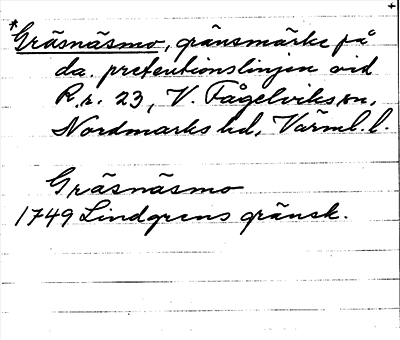 *Gräsnäsmo, gränsmärke på
da. pretentionslinjen vid
R.r. 23, V. Fågelviks sn,
Nordmarks hd, Värml. l.
Gräsnäsmo
1749 Lindgrens gränsk.